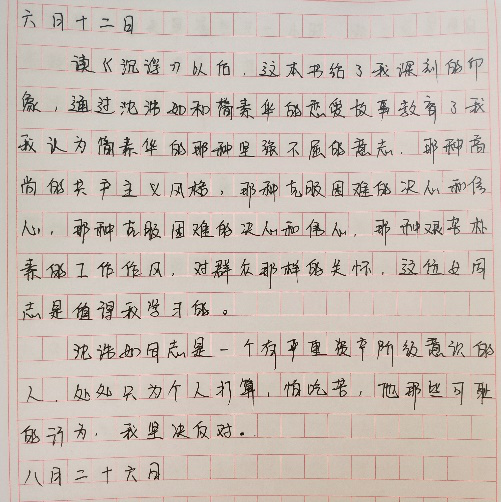 六月十二日
读《沉浮》以后，这本书给了我深刻的印
象，通过沈浩如和简素华的恋爱故事教育了我
我认为简素华的那种坚强不屈的意志，那种高
尚的共产主义风格，那种克服困难的决心和信
心，那种克服困难的决心和信心，那种艰苦朴
素的工作作风，对群众那样的关怀，这位女同
志是值得我学习的。
沈浩如同志是一个有严重资产阶级意识的
人，处处只为个人打算，怕吃苦，他那些可耻
的行为，我坚决反对。
八月二十六日